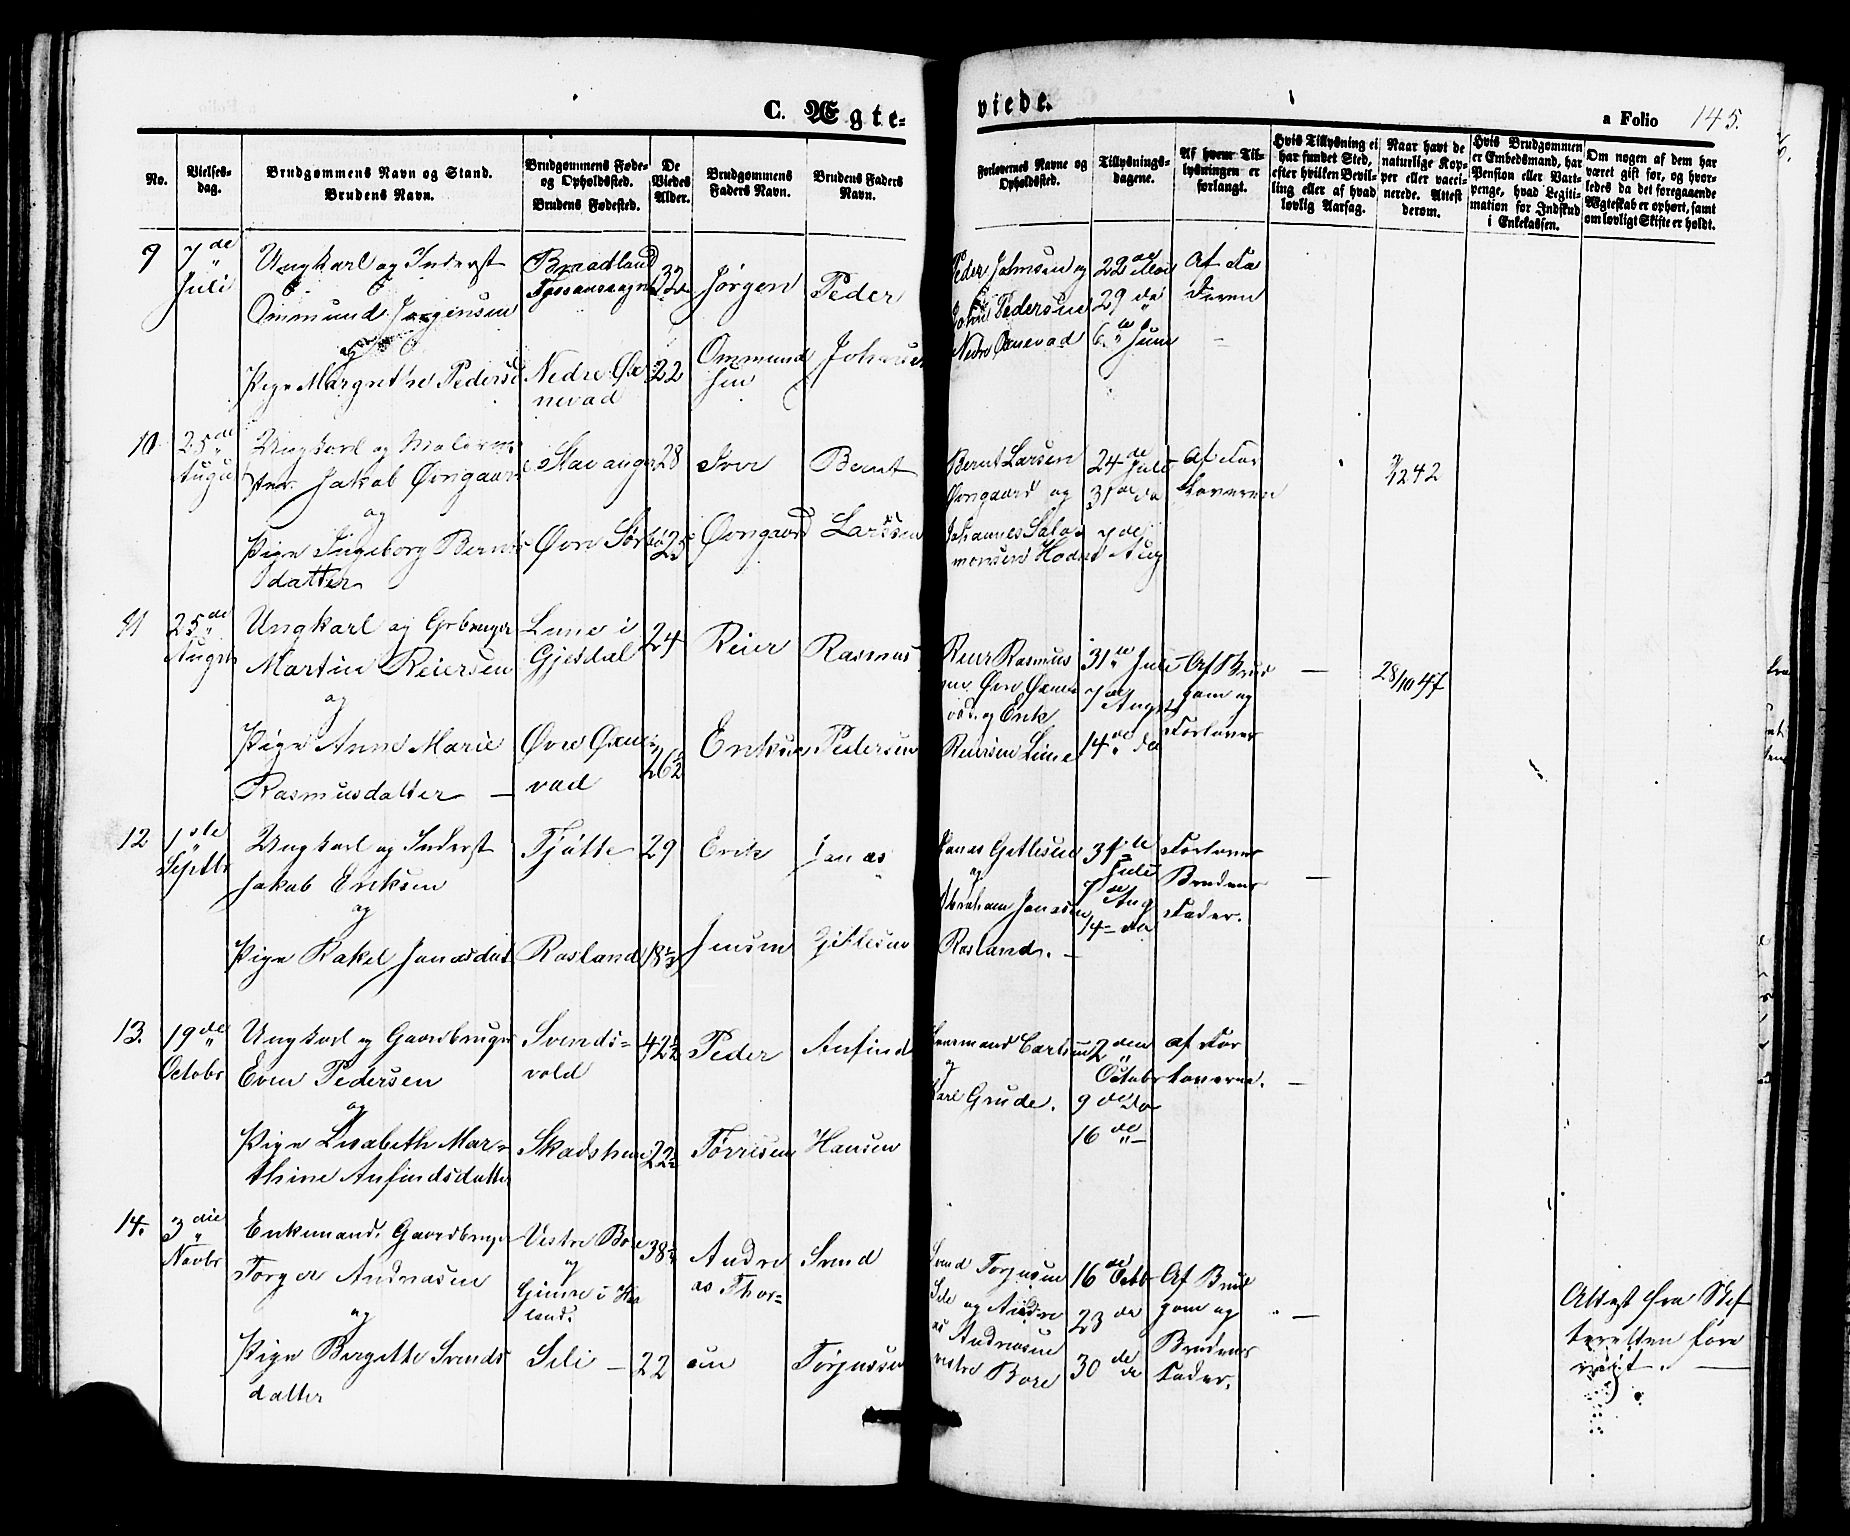 C. Ægte=
viede.
a Folio 145.
No.
Vielses-
dag.
Brudgommens Navn og Stand.
Brudens Navn.
Brudgommens Føde-
og Opholdssted.
Brudens Fødested.
De
Viedes
Alder.
Brudgommens
Faders Navn.
Brudens Faders
Navn.
Forlovernes Navne og
Opholdssted.
Tillysnings-
dagene.
Af hvem Til-
lysningen er
forlangt.
Hvis Tillysning ei
har fundet Sted,
efter hvilken Bevil-
ling eller af hvad
lovlig Aarsag.
Naar havt de
naturlige Kop-
per eller vacci-
nerede. Attest
derom.
Hvis Brudgommen
er Embedsmand, har
Pension eller Vart-
penge, hvad Legiti-
mation for Indskud
i Enkekassen.
Om nogen af dem har
været gift før, og hvor-
ledes da det foregaaende
Ægteskab er ophørt, samt
om lovligt Skifte er holdt.
9
7de
Juli
Ungkarl og Inderst
Ommund Jørgensen
og
Pige Margrethe Peders
Braadland
Nedre Øx
nevad
32
22
Jørgen
Ommund
sen
Peder
Johnsen
Peder Johnsen og
John Pedersen
Nedre Oxnevad
22de Mai
29 de
6te Juni
Af Fa
deren
10
25de
Augu
Ungkarl og Malerme
ster Jakob Øvngaard
og
Pige Ingeborg Bernts
datter
Stavanger
Øvre Sørbø
28
25
Iver
Øvngaard
Bernt
Larssen
Bernt Larsen
Øvngaard og
Johannes Salo
monsen Hodne
24de Juli
31de do
7de Aug
Af For
loveren
11
25de
August
Ungkarl og Grbruger
Martin Reiersen
og
Pige Anne Marie
Rasmusdatter —
Lime i
Gjesdal
Øvre Øxne
vad
24
26½
Reier
Eriksen
Rasmus
Pedersen
Reier Rasmus
sen Øvre Øxne
vad og Erik
Reiersen Lime
31te Juli
7de August
14de do
Af Brud
gom og
Forlover
—
28/10 47
12
1ste
Septbr
Ungkarl og Inderst
Jakob Eriksen
og
Pige Rakel Jonasdat
Tjøtte
Rosland
29
Erik
Jensen
Jonas
Gitlesen
Jonas Gitlesen
og
Abraham Jonassen
Rosland. —
31te
Juli
7de Aug
14 — do
Forlover
Brudens
Fader.
—
13.
19de
Octobr
Ungkarl og Gaardbruger
Even Pedersen
og
Pige Lisabeth Mar=
thine Anfindsdatter
Svends=
vold
Skadsheim
42½
22½
Peder
Tørresen
Anfind
Hansen
Lensmand Carlsen
og
Karl Grude.
2den
Octobr
9de do
16de —
af For
loverne.
—
14.
3die
Novbr
Enkemand. Gaardbruger
Torger Andreasen
og
Pige Bergitte Svends
datter
Vestre Bore
og
Gimre i Haa
land.
Seli —
22
Andre
as Thor=
sen
Svend
Torjussen
Svend Torjusen
Sele og Andre
as Andreasen
vestre Bore
16de Octb
23 do
30de do
Af Brud
gom og
Brudens
Fader.
—
Attest fra Skif
teretten fore
viist. —